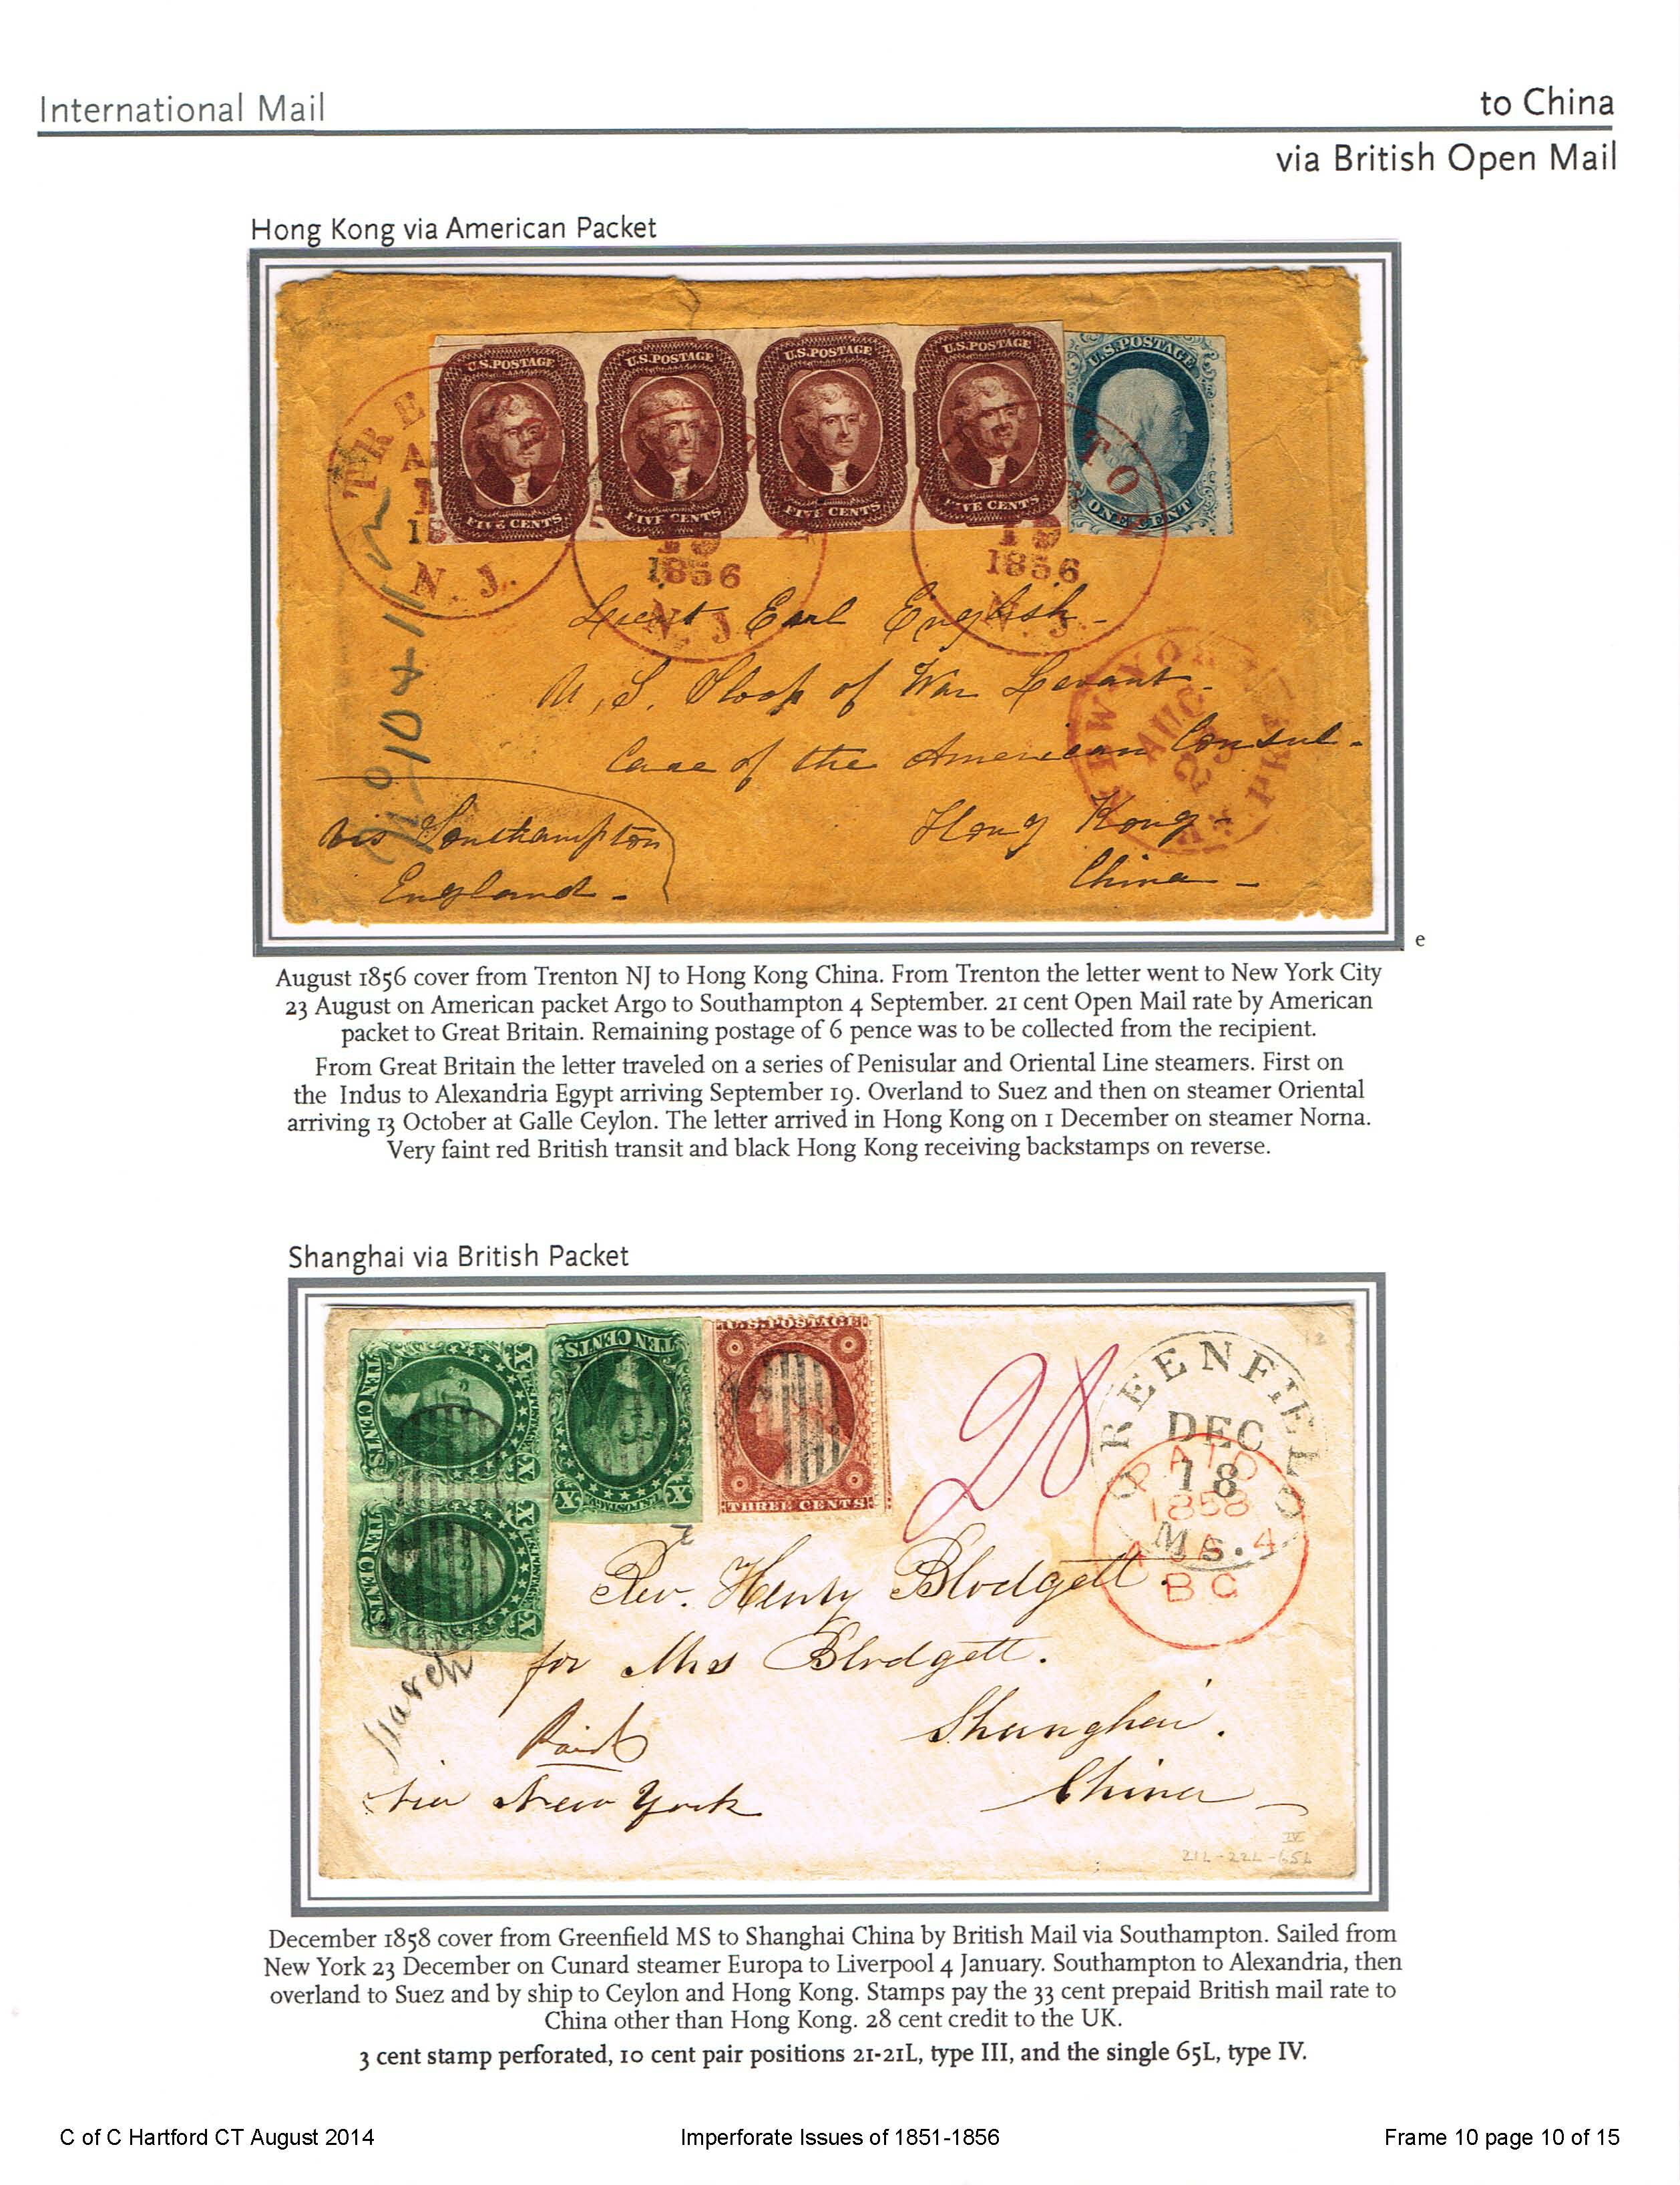 International Mail
to China
via British Open Mail
Hong Kong via American Packet
U.S.POSTAGE
U.S.POSTAGE
U.S.POSTAGE
U.S.POSTAGE
U.S.POSTAGE
FIVE CENTS
FIVE CENTS
FIVE CENTS
FIVE CENTS
ONE CENT
TRE
N. J.
19
1856
N. J
TON
19
1856
N. J.
Lieut Earl English
U, S. Sloop of War Levant
Care of the American Consul
Hong Kong
China
via Southampton
England
NEW YORK
AUG
23
AM. PKT.
e
August 1856 cover from Trenton NJ to Hong Kong China. From Trenton the letter went to New York City
23 August on American packet Argo to Southampton 4 September. 21 cent Open Mail rate by American
packet to Great Britain. Remaining postage of 6 pence was to be collected from the recipient.
From Great Britain the letter traveled on a series of Penisular and Oriental Line steamers. First on
the Indus to Alexandria Egypt arriving September 19. Overland to Suez and then on steamer Oriental
arriving 13 October at Galle Ceylon. The letter arrived in Hong Kong on 1 December on steamer Norna.
Very faint red British transit and black Hong Kong receiving backstamps on reverse.
Shanghai via British Packet
X U.S.POSTAGE X
TEN CENTS
X U.S.POSTAGE X
TEN CENTS
TEN CENTS
X U.S.POSTAGE X
U.S.POSTAGE
THREE CENTS
28
GREENFIELD
DEC
18
Ms.
PAID
1858
JA 4
B C
Rev. Henry Blodgett.
for Mrs Blodgett.
March
Paid
Shanghai.
via New York
China
IV
21L-22L-65L
December 1858 cover from Greenfield MS to Shanghai China by British Mail via Southampton. Sailed from
New York 23 December on Cunard steamer Europa to Liverpool 4 January. Southampton to Alexandria, then
overland to Suez and by ship to Ceylon and Hong Kong. Stamps pay the 33 cent prepaid British mail rate to
China other than Hong Kong. 28 cent credit to the UK.
3 cent stamp perforated, 10 cent pair positions 21-21L, type III, and the single 65L, type IV.
C of C Hartford CT August 2014
Imperforate Issues of 1851-1856
Frame 10 page 10 of 15